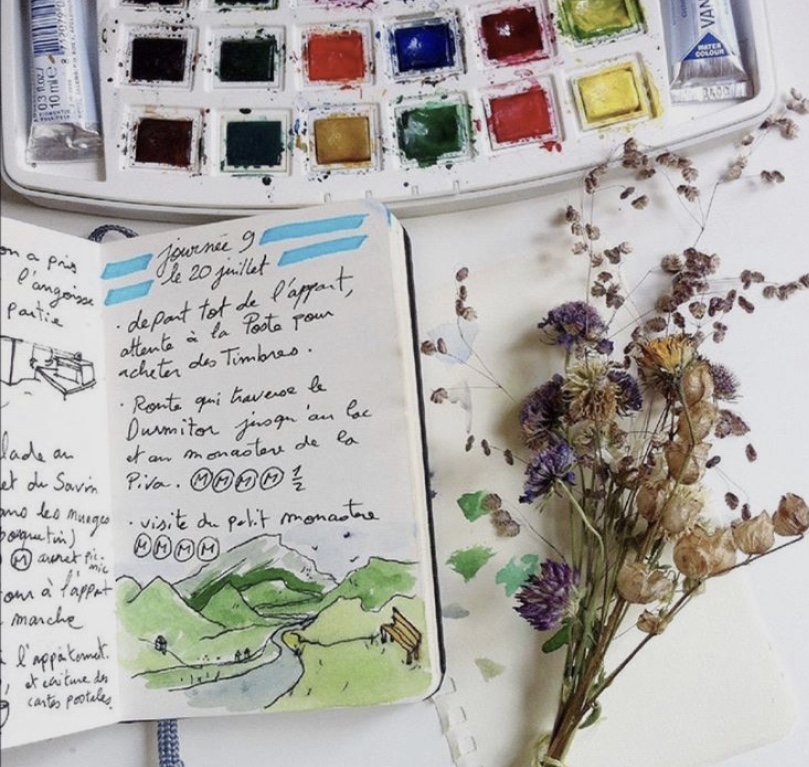 on a pris
l'angoisse
partie
lade au
et du Savin
les nuages
bouquetin)
M
à l'appart
marche
l'appartement.
et écriture des
cartes postales.
journée 9
le 20 juillet
. depart tot de l'appart,
attente à la Poste pour
acheter des Timbres.
. Route qui traverse le
Durmitor jusqu'au lac
et au monastere de la
Piva. M M M M 1/2
. visite du petit monastere
M M M M
0.3 fl.oz/
10 ml
VAN
WATER
COLOUR